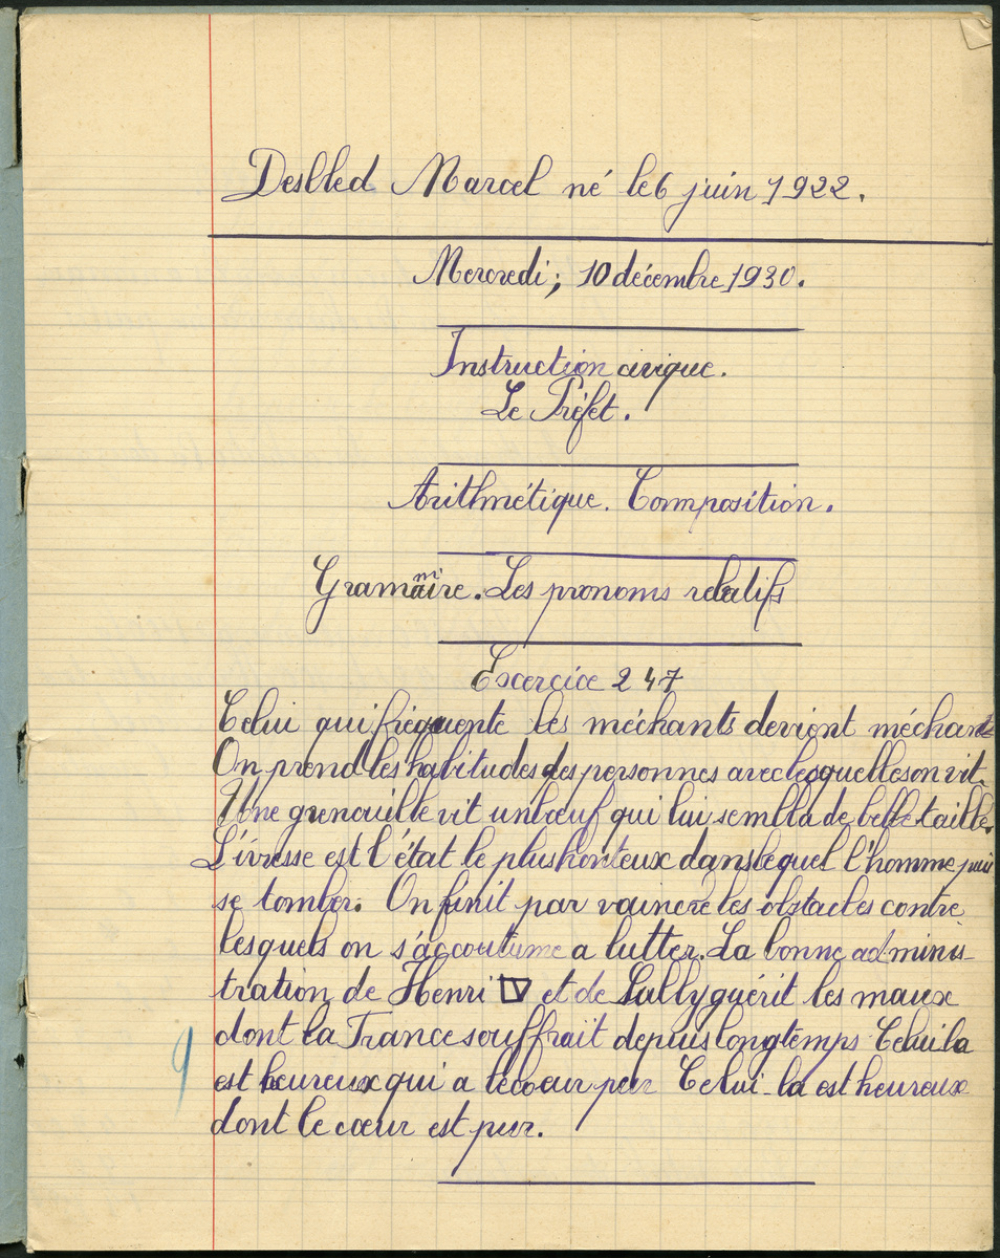 Desbled Marcel né le 6 juin 1922.
Mercredi; 10 décembre 1930.
Instruction civique.
Le Préfet.
Arithmétique. Composition.
Grammaire. Les pronoms relatifs
Exercice 247
Celui qui fréquente les méchants devient méchant
On prend les habitudes des personnes avec lesquelles on vit.
Une grenouille vit un bœuf qui lui sembla de belle taille.
L'ivresse est l'état le plus honteux dans lequel l'homme puis
se tomber. On finit par vaincre les obstacles contre
lesquels on s'accoutume a lutter. La bonne adminis-
tration de Henri IV et de Sully guérit les maux
dont la France souffrait depuis longtemps Celui la
9
est heureux qui a le cœur pur Celui-la est heureux
dont le cœur est pur.